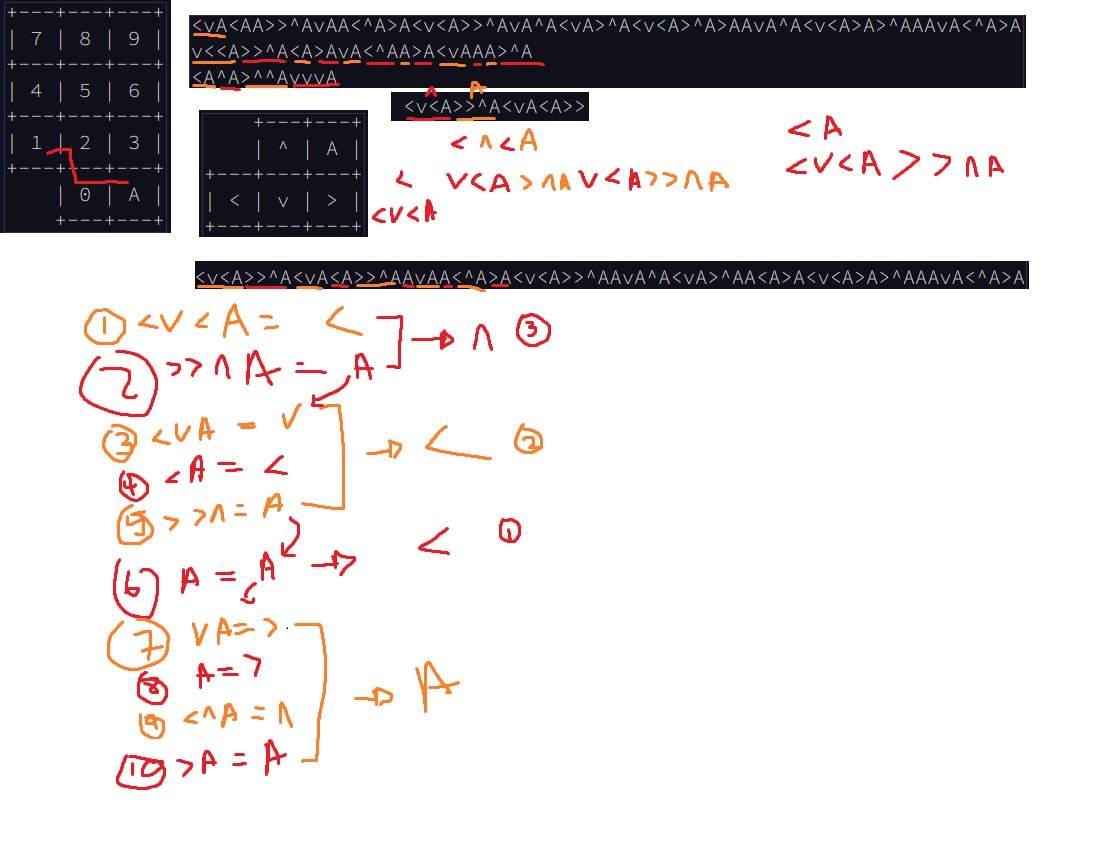 +---+---+---+
| 7 | 8 | 9 |
+---+---+---+
| 4 | 5 | 6 |
+---+---+---+
| 1 | 2 | 3 |
+---+---+---+
| 0 | A |
+---+---+
<vA<AA>>^AvAA<^A>A<v<A>>^AvA^A<vA>^A<v<A>^A>AAvA^A<v<A>A>^AAAvA<^A>A
v<<A>>^A<A>AvA<^AA>A<vAAA>^A
<A^A>^^AvvvA
^ A
<v<A>>^A<vA<A>>
+---+---+
| ^ | A |
+---+---+---+
| < | v | >  |
+---+---+---+
< ^ < A
< v<A >^A v<A >>^A
<v<A
< A
<v<A >>^A
<v<A>>^A<vA<A>>^AAvAA<^A>A<v<A>>^AAvA^A<vA>^AA<A>A<v<A>A>^AAAvA<^A>A
1 <v<A = < → ^ 3
2 >>^A = A
3 <vA = v
4 <A = < → < 2
5 >>^ = A
6 A = A → < 1
7 vA = >
8 A = >
9 <^A = ^ → A
10 >A = A